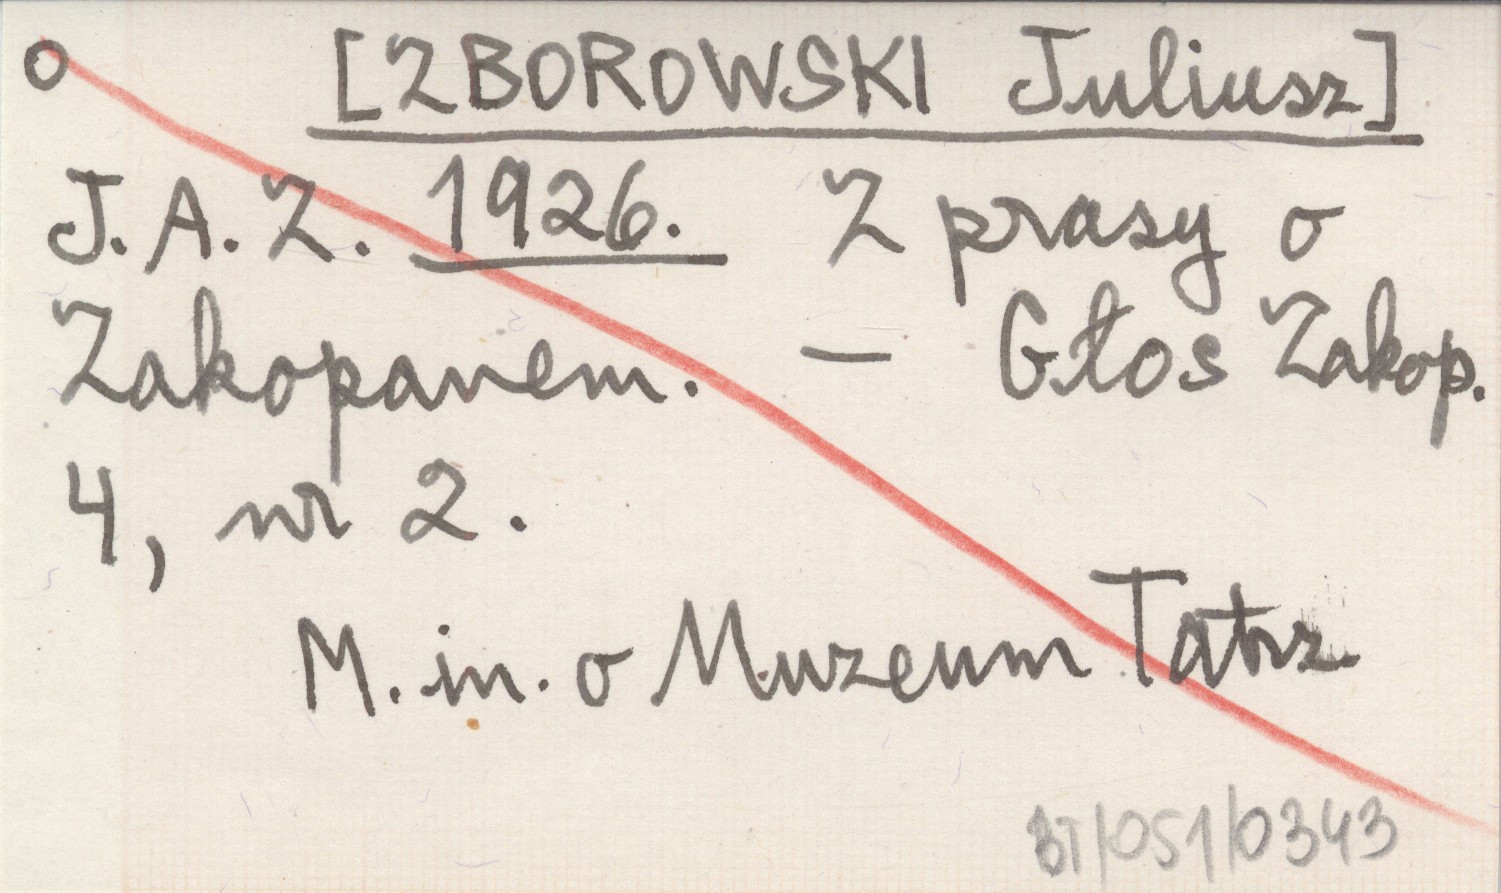 o [ZBOROWSKI Juliusz]
J. A. Z. 1926. Z prasy o
Zakopanem. — Głos Zakop.
4, nr 2.
M. in. o Muzeum Tatrz.
BT/051/0343